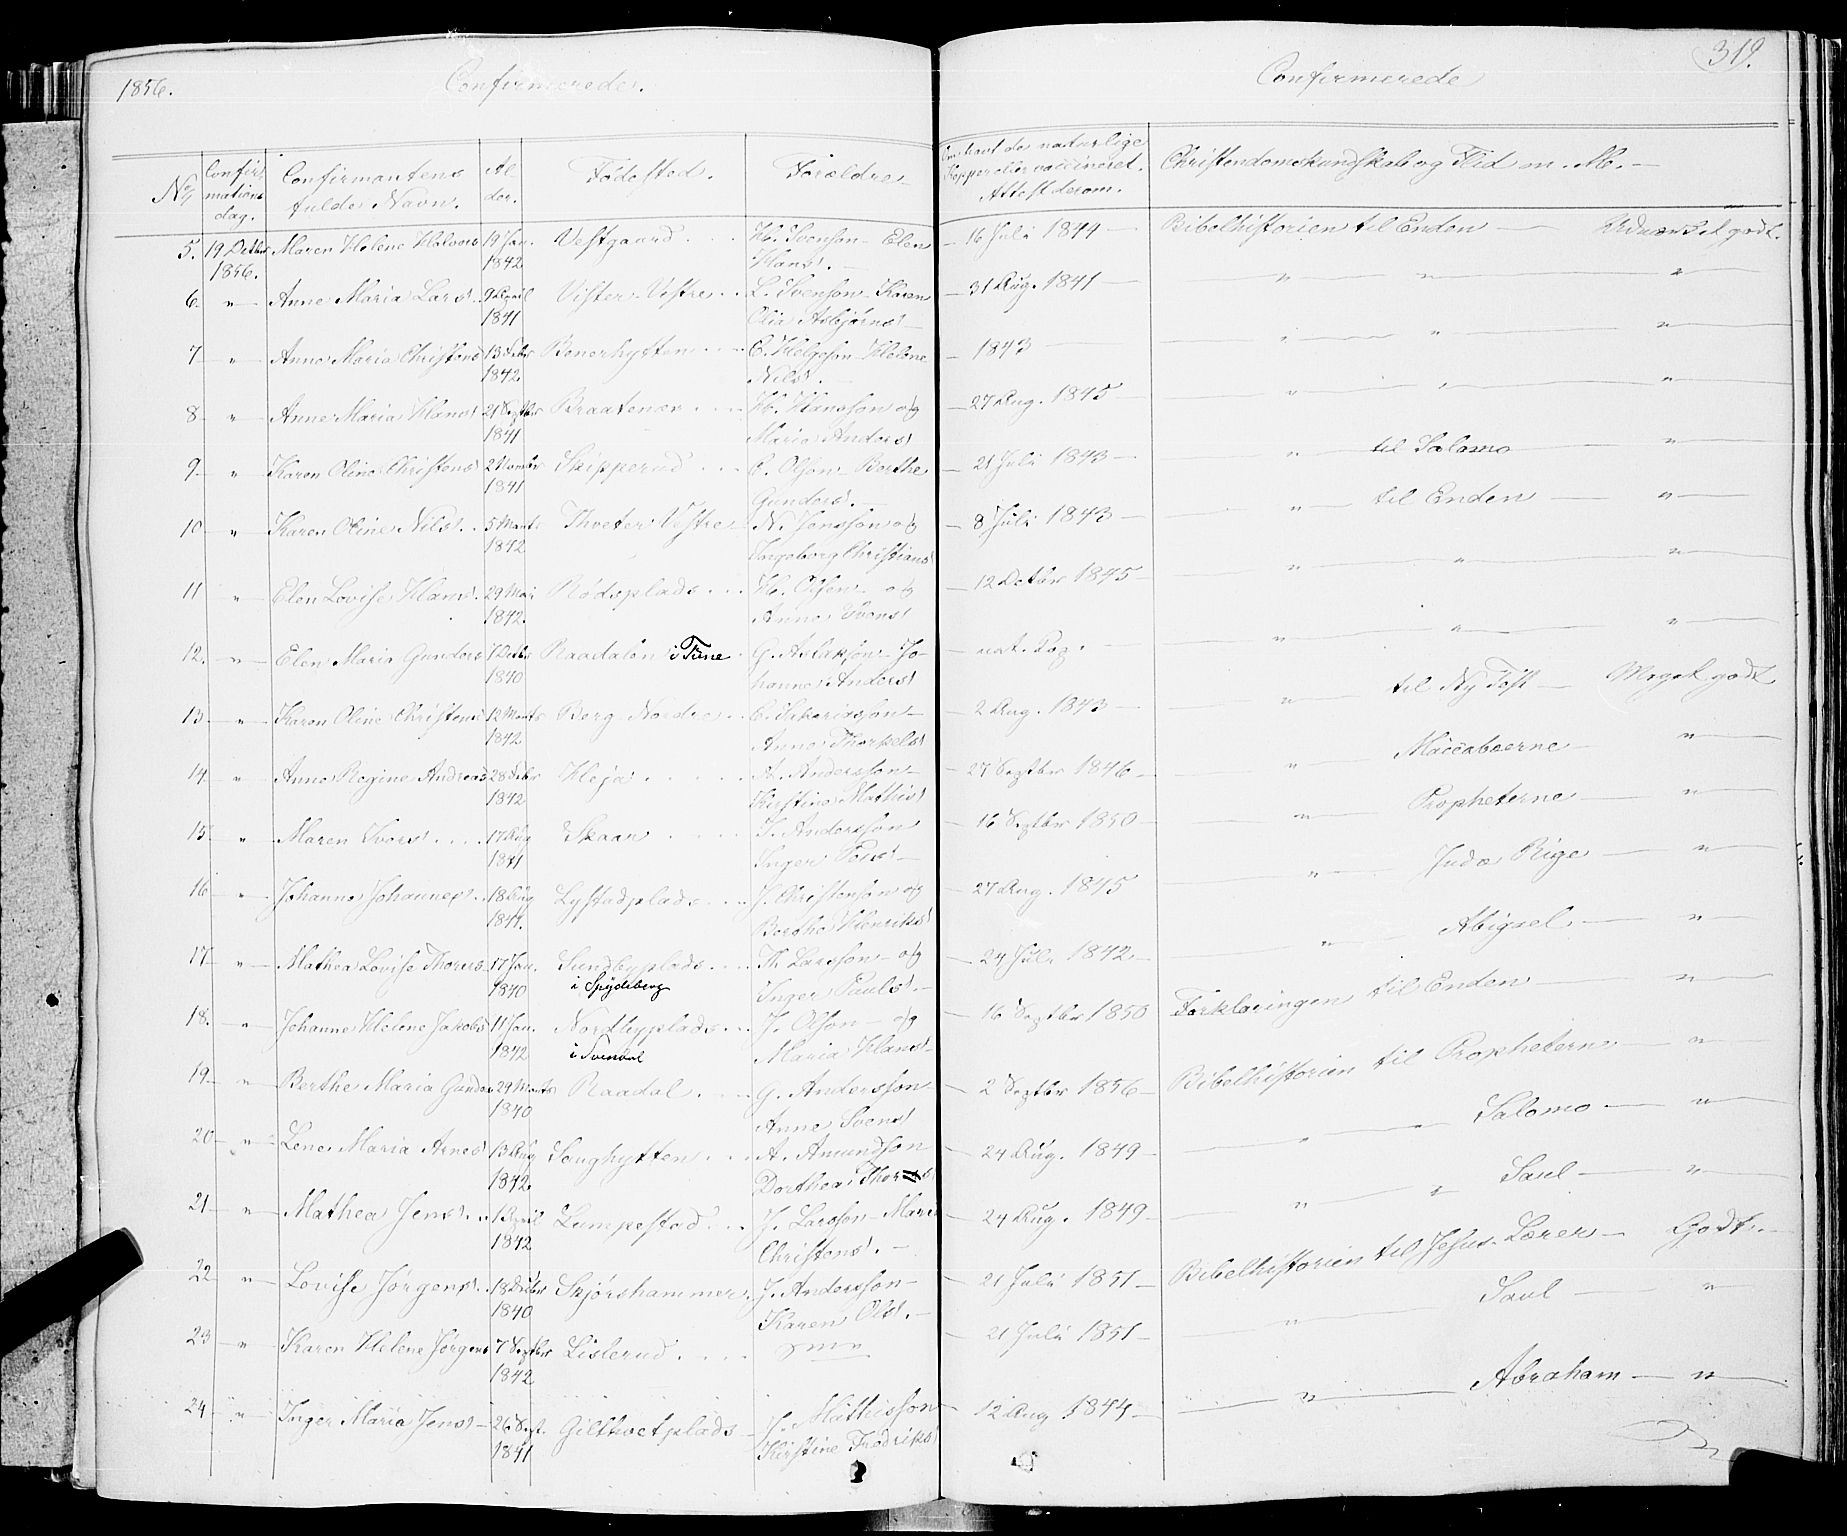 1856.
Confirmerede.
Confirmerede
319.
No
Confir
mations
dag.
Confirmantens
fulde Navn.
Al
der.
Fødested.
Forældre
havt de naturlige
Kopper eller vaccineret.
Attest derom.
Christendomskundskab og Flid m. M. —
5. 19 Octbr Maren Helene Halvors 19 Jan. Vestgaard . . H. Svenson — Elen — 16 Juli 1844 — Bibelhistorien til Enden — godt.
1856. 1842 Hans. —
6 " Anne Maria Lars . . 9 April Vister Vestre . . L. Svenson — Karen — 31 Aug. 1841 — " " "
1841 Olia Asbjørns —
7 " Anne Maria Christens 13 Febr Benerhytten . . . C. Helgeson — Helene — 1843 — " " "
1842 Nils. —
8 " Anne Maria Hans 21 Septbr Braatener . . . H. Hansson og — 27 Aug. 1845 — " " "
1841 Maria Anders
9 " Karen Oline Christens 2 Novmbr Skipperud . . . C. Olson — Berthe — 21 Juli 1843 — " til Salomo — "
1841 Gunders. —
10 " Karen Oline Nils . . 5 Marts Thveter Vestre — N. Jonsson og — 8 Juli 1843 — " til Enden — "
1842 Ingeborg Christians
11 " Elen Lovise Hans . 29 Mai Rødsplads . . . H. Olsen — og — 12 Octbr 1845 — " " "
1842. Anne Svens
12. " Elen Maria Gunders 7 Octbr Raadalen i G. Aslakson — Jo- — nat. Kop. — " " "
1840 hanne Anders
13 " Karen Oline Christens 12 Marts Berg Nordre . . C. Sakariasson — — 2 Aug. 1843 — " til Ny Test — Meget godt
1842 Anne Thorkels
14 " Anne Regine Andreas 28 Febr Heja . . . . A. Andersson — — 27 Septbr 1846 — " Maccabæerne — "
1842 Kirstine Mathis
15 " Maren Ivers . . . . 17 Aug Skaar . . . . I. Andersson — 16 Septbr 1850 — " Propheterne — "
1841 Inger
16 " Johanne Johannes . . 18 Aug Lystadplads . . . J. Christenson og — 27 Aug. 1845 " Judæ Rige — "
1841. Berthe Henriks
17 " Mathea Lovise Thores 17 Jan. Sundbyplads . . . Th. Larsson — og — 24 Juli 1842 — " Abigael — "
1840 i Spydeberg Inger Pauls. —
18. " Johanne Helene Jakobs 11 Jan. Nortbyplads . . J. Olson — og — 16 Septbr 1850 Forklaringen til Enden — "
1842 Maria Hans —
19 " Berthe Maria Gunders 29 Marts Raadal . . . . G. Andersson — — 2 Septbr 1856 — Bibelhistorien til Propheterne — "
1840 Anne Svens
20 " Lene Maria Arnes 13 Aug Saughytten . . . A. Amundson — 24 Aug. 1849 — " " Salomo — "
1842. Dorthea
21 " Mathea Jens . . 1 April Lumpestad . . . J. Larsson — Mari — 24 Aug. 1849 — " " Saul — "
1842 Christens. —
22 " Lovise Jørgens . . 18 Skjørshammer . J. Andersson — — 21 Juli 1851 — Bibelhistorien til Jesus Lærer — Godt. —
1840 Karen Ols. —
23 " Karen Helene Jørgens 7 Septbr Lislerud . . . . — 21 Juli 1851 — " Saul — "
1842
24 " Inger Maria Jens — 26 Sept. Gilthvetplads — J. Mathisson — 12 Aug 1844 — " Abraham — "
1841 Kirstine Fredriks